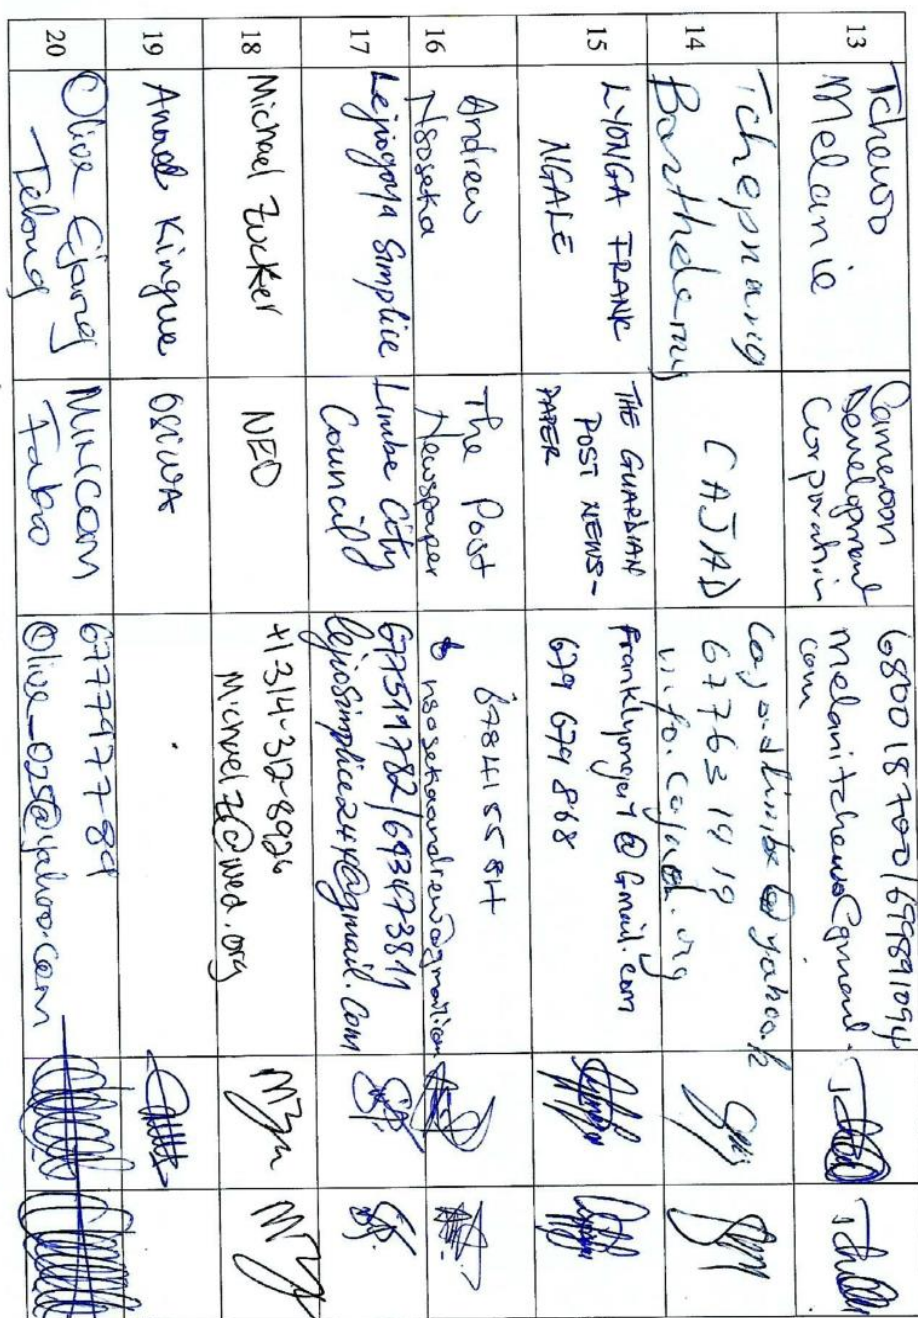 13
Tchewo
Melanie
Cameroon
Development
Corporation
680018700/699891094
melanitchewo@gmail.
com
14
Tchepnang
Barthelemy
CAJAD
67763 19 19
15
LYONGA FRANK
NGALE
THE GUARDIAN
POST NEWS-
PAPER
Franklyonga7@Gmail.com
679 679 868
16
Andrew
Nsoseka
The Post
Newspaper
nsosekaandrew@gmail.com
17
Lejiogoya Simplice
Limbe City
Council
677519782/693473811
lejiosimplice24@gmail.com
18
Michael Zucker
NED
+1-314-312-8926
Michaelz@ned.org
19
Kingue
OSIWA
20
Olive Ejang
Tebug
MINCOM
Fabo
677797789
Olive_025@yahoo.com